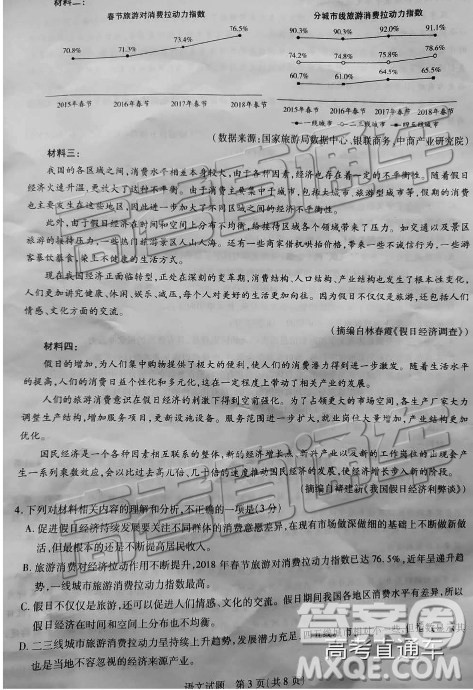 材料二：
春节旅游对消费拉动力指数
分城市线旅游消费拉动力指数
70.8%
71.3%
73.4%
76.5%
2015年春节 2016年春节 2017年春节 2018年春节
90.3% 90.3% 92.0% 91.1%
74.2% 75.8% 78.6%
60.7% 61.0% 64.5% 65.5%
2015年春节 2016年春节 2017年春节 2018年春节
一线城市 二三线城市 四五线城市
(数据来源:国家旅游局数据中心,银联商务,中商产业研究院)
材料三：
我国的各区域之间，消费水个相差本身极大，由于各种因素，经济也存在着一定的不平衡性。随着假日
经济火速升温，更放大了这种不平衡。由于消费主要集中于城市，包括大城市、旅游型城市等，假期的消费
也主要发生在这些地区，因此进一步加大了不同区域之间的经济不平衡性。
此外，由于假日经济在时间和空间上分布不均衡，能够给区域各个领域带来了压力。如交通以及景区
旅游的接待压力，一些热门旅游景区人山人海。还有一些商家借机哄抬价格，带来一些不诚信行为，一些游
客暴饮暴食，染上不健康的生活方式。
现在我国经济正面临转型，正处在深刻的变革期，消费结构、人口结构、产业结构也发生了根本性变化，
人们更加讲究健康、休闲、娱乐、减压，每个人对美好的生活更加向往。因为假日不仅仅是旅游，还包括人们
情感、文化方面的交流。
(摘编自林春霞《假日经济调查》)
材料四：
假日的增加，为人们集中购物提供了极大的便利，使人们的消费潜力得到进一步激发。随着生活水平
的提高，人们的消费日益个性化和多元化，这在一定程度上带动了相关产业的发展。
人们的旅游消费意识在假日经济的刺激下得到空前强化。为了占领更大的市场空间，各生产厂家大力
调整生产结构，增加服务项目，更新设施设备。服务范围进一步扩大，就业岗位大量增加，产业结构更加
优化。
国民经济是一个各种因素相互联系的整体，新的经济增长点、新兴产业以及新的工作岗位的出现会产
生一系列乘数效应，会以比过去高几倍、几十倍的速度推动国民经济的发展，使经济增长步入新的阶段。
(摘编自嵇建新《我国假日经济利弊谈》)
4. 下列对材料相关内容的理解和分析，不正确的一项是(3分)
A. 促进假日经济持续发展要关注不同群体的消费意愿差异，在现有市场做深做细的基础上不断做新做
活，但根本的还是不断提高居民收入。
B. 旅游消费对经济拉动作用不断提升，2018年春节旅游对消费拉动力指数已达76.5%，近年呈递升趋
势，一线城市旅游消费拉动力指数最高。
C. 假日不仅仅是旅游，还可以促进人们情感、文化的交流。但假日期间我国各地区消费水平有差异，所以
假日经济在时间和空间上分布也不均衡。
D. 二三线城市旅游消费拉动力呈持续上升趋势，发展潜力充足
也是当地不容忽视的经济来源产业。
语文试题 第3页(共8页)
高考直通车
高考直通车
答案圈